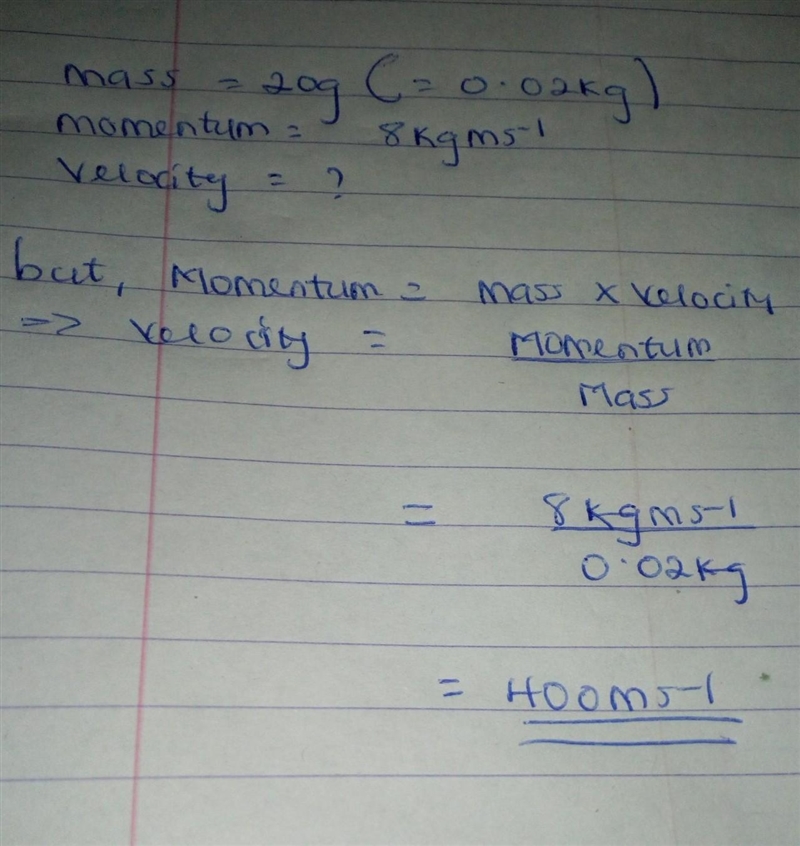 mass = 20g (= 0.02kg)
momentum = 8kgms-1
velocity = ?
but, Momentum = mass x velocity
=> velocity = Momentum
Mass
= 8kgms-1
0.02kg
= 400ms-1